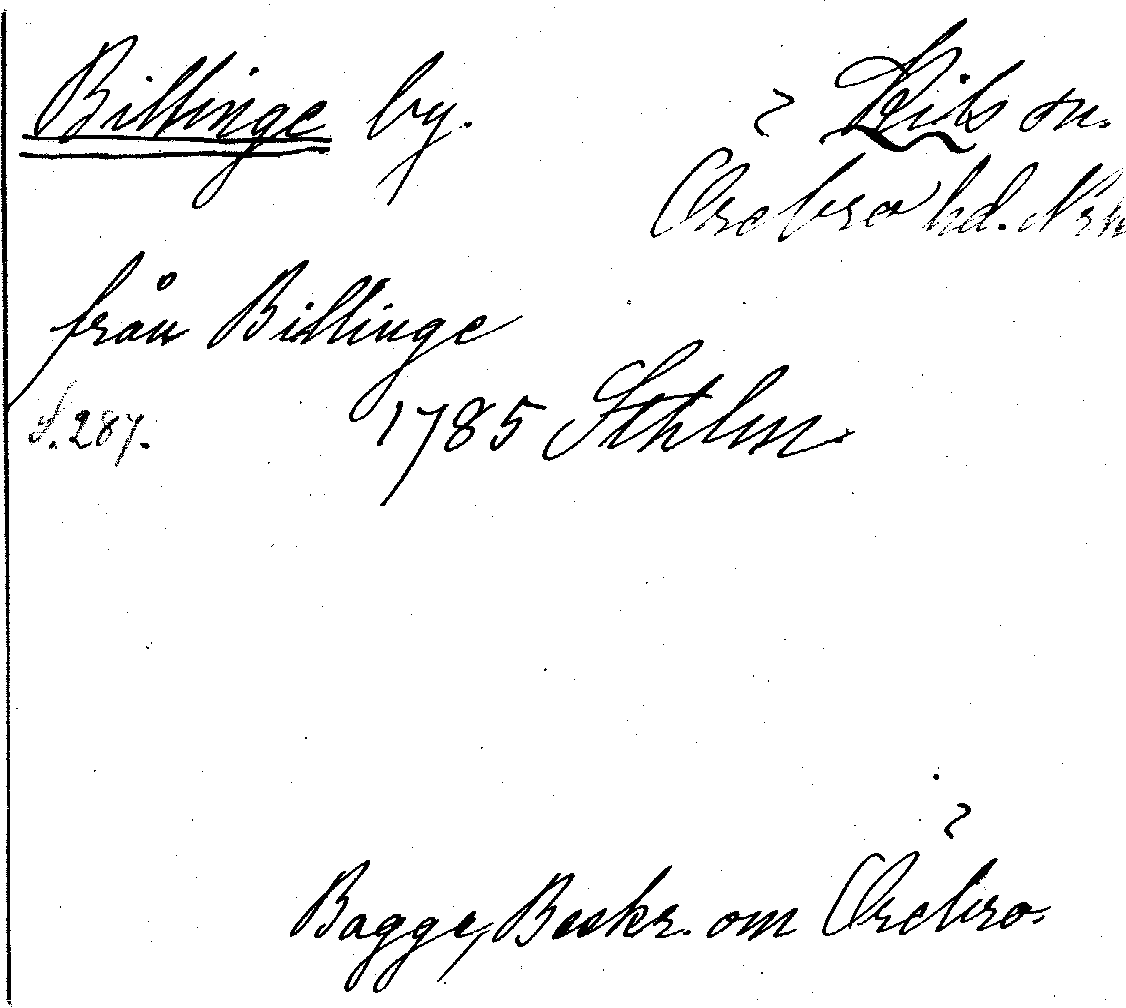 Billinge by. Kils sn.
Örebro hd. Nrk
från Billinge
S. 287. 1785 Sthlm
Bagge, Beskr. om Örebro.